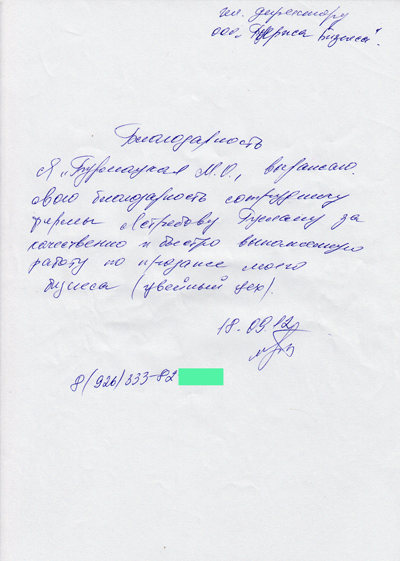 ген. директору
ооо „Бизнеса".
Благодарность
Я, М.О., выражаю
свою благодарность сотруднику
фирмы Ястребову Руслану за
качественно и быстро выполненную
работу по продаже моего
бизнеса (швейный цех).
18.09.12
8(926)333-82